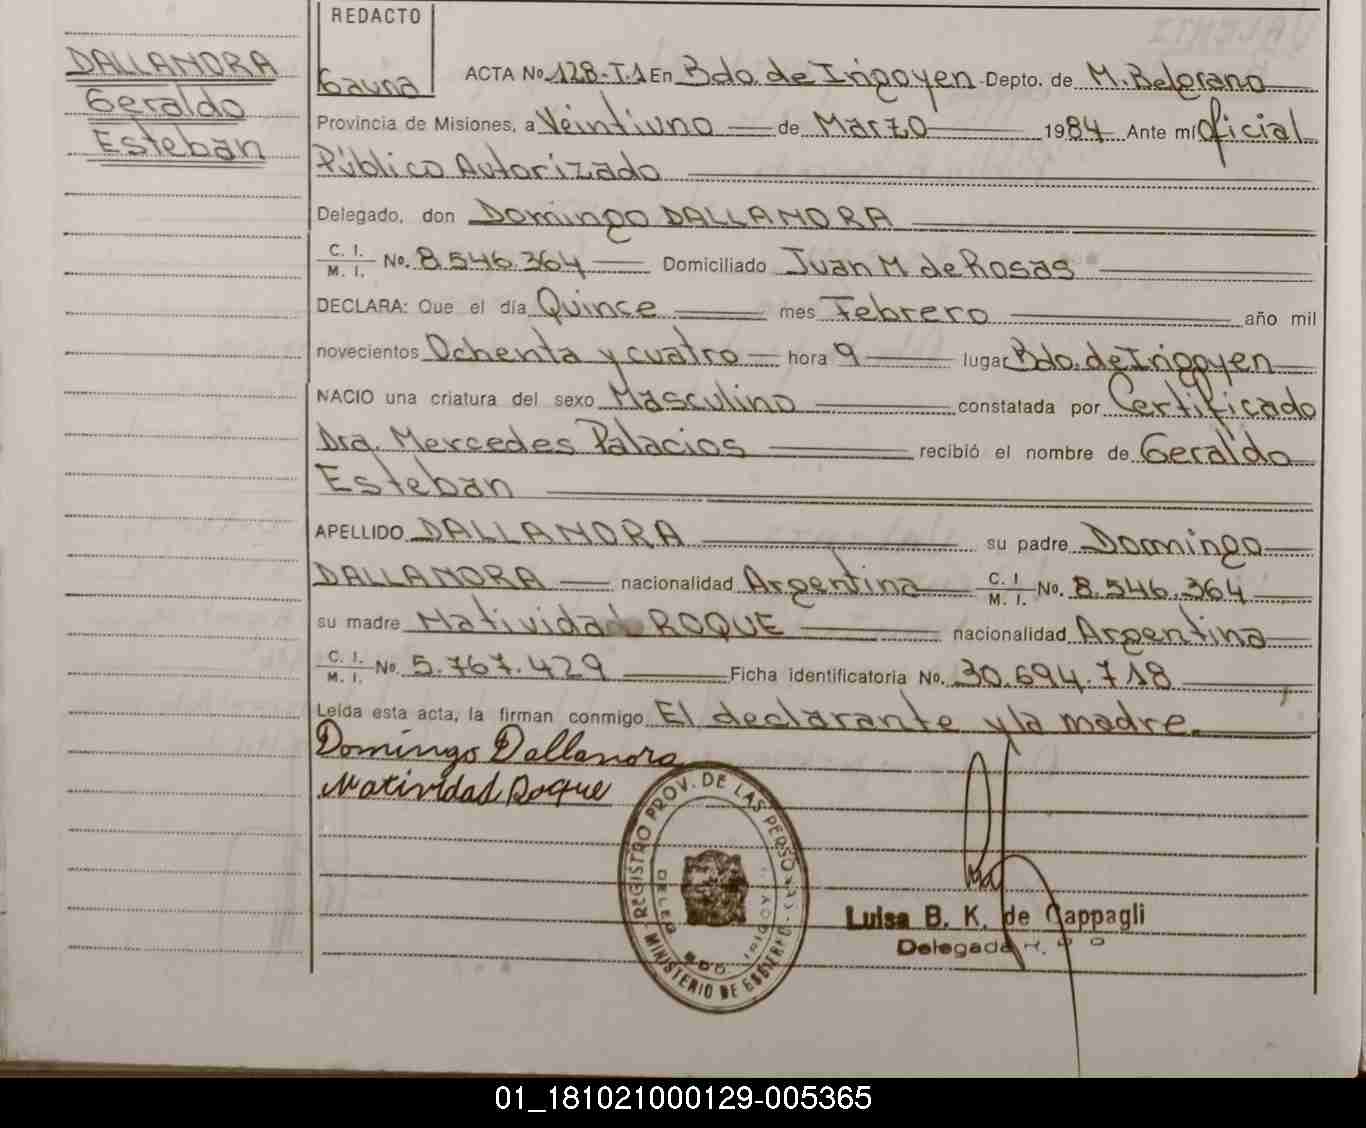 REDACTO
Gauna
DALLANORA
Geraldo
Esteban
ACTA No. 128-T.1 En Bdo. de Irigoyen Depto. de M. Belgrano
Provincia de Misiones, a Veintiuno de Marzo 1984 Ante mí Oficial
Público Autorizado
Delegado, don Domingo DALLANORA
C. I.
M. I. No. 8.546.364 Domiciliado Juan M de Rosas
DECLARA: Que el día Quince mes Febrero año mil
novecientos Ochenta y cuatro hora 9 lugar Bdo. de Irigoyen
NACIO una criatura del sexo Masculino constatada por Certificado
Dra. Mercedes Palacios recibió el nombre de Geraldo
Esteban
APELLIDO DALLANORA su padre Domingo
DALLANORA nacionalidad Argentina C. I. M. I. No. 8.546.364
su madre Natividad ROQUE nacionalidad Argentina
C. I.
M. I. No. 5.767.429 Ficha identificatoria No. 30.694.718
Leída esta acta, la firman conmigo El declarante y la madre.
Domingo Dallanora
Natividad Roque
REGISTRO PROV. DE LAS PERSONAS
MINISTERIO DE GOBIERNO
Luisa B. K. de Cappagli
Delegada
01_181021000129-005365